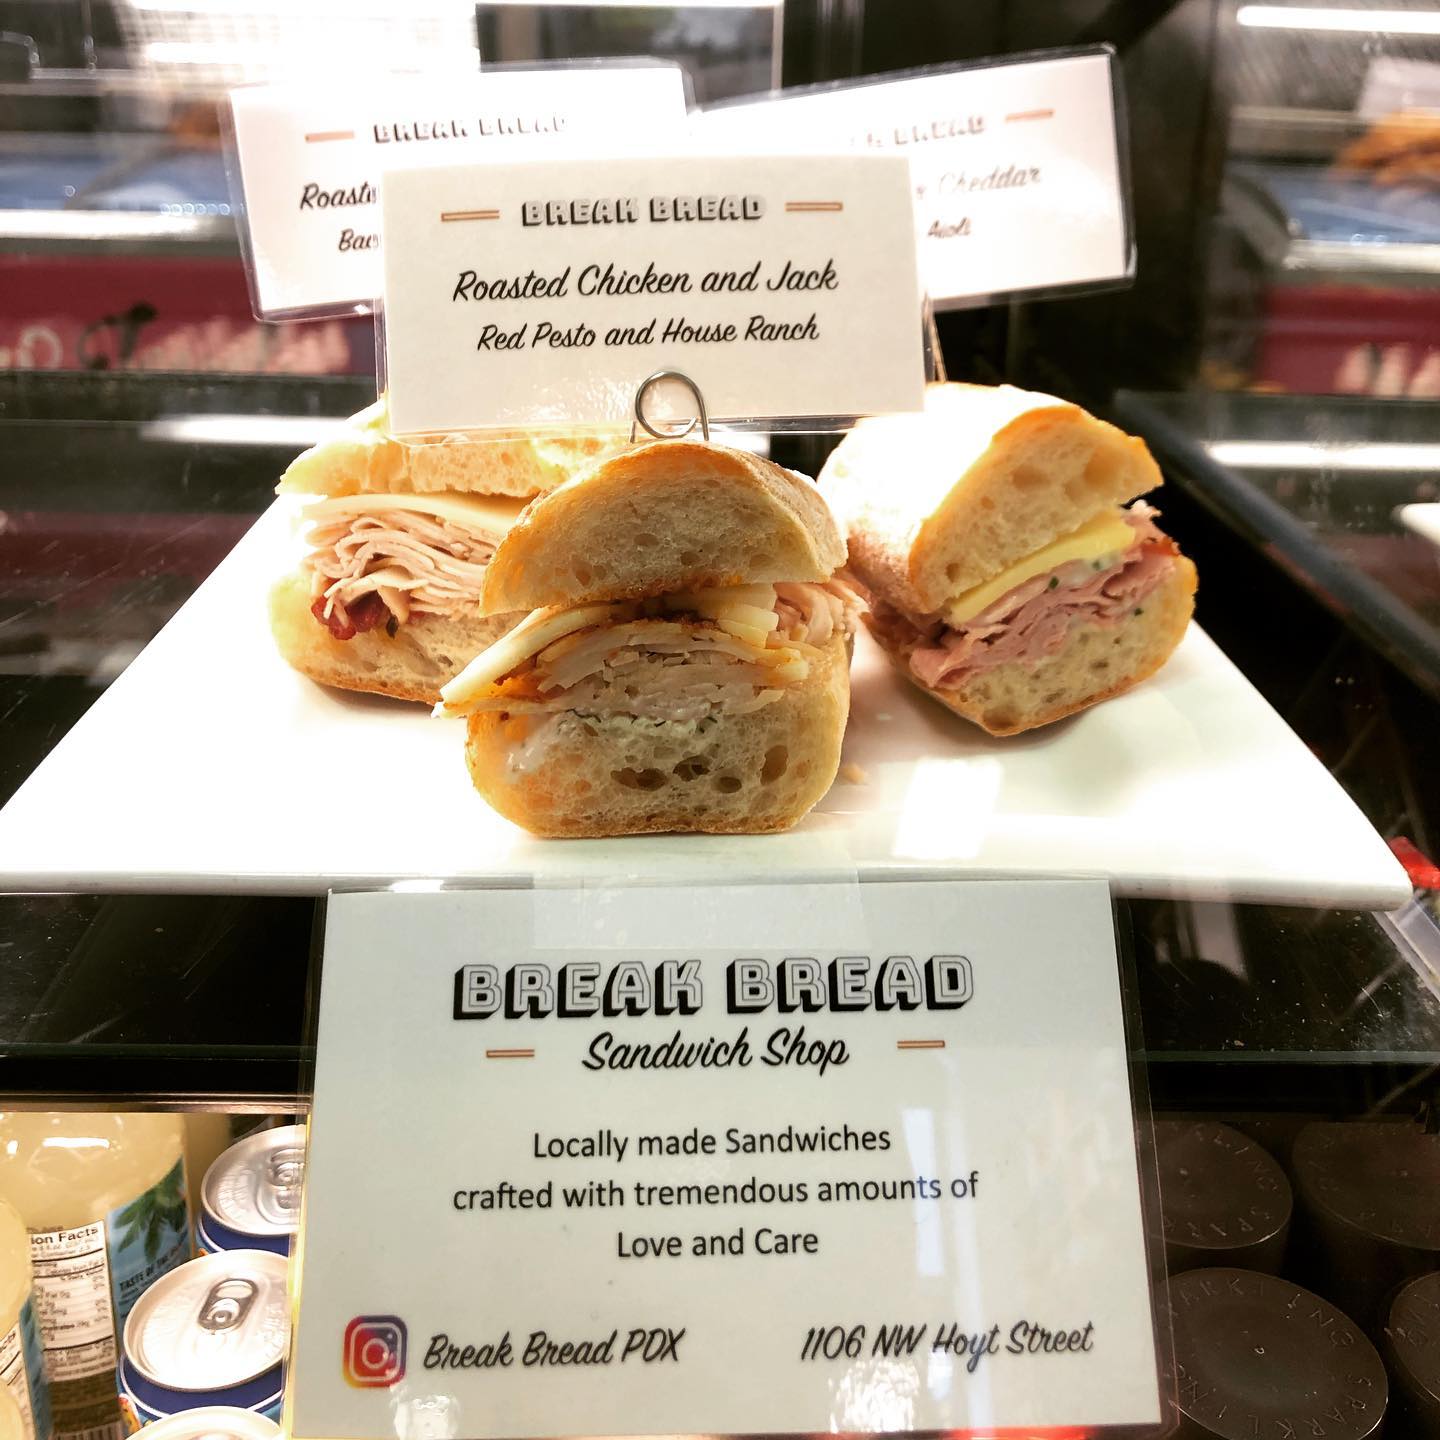 BREAK BREAD
BREAD
Cheddar
Aioli
BREAK BREAD
Roasted Chicken and Jack
Red Pesto and House Ranch
BREAK BREAD
Sandwich Shop
Locally made Sandwiches
crafted with tremendous amounts of
Love and Care
Break Bread PDX
1106 NW Hoyt Street
ion Facts
TASTE OF THE
SPARKLING
SPARKLING